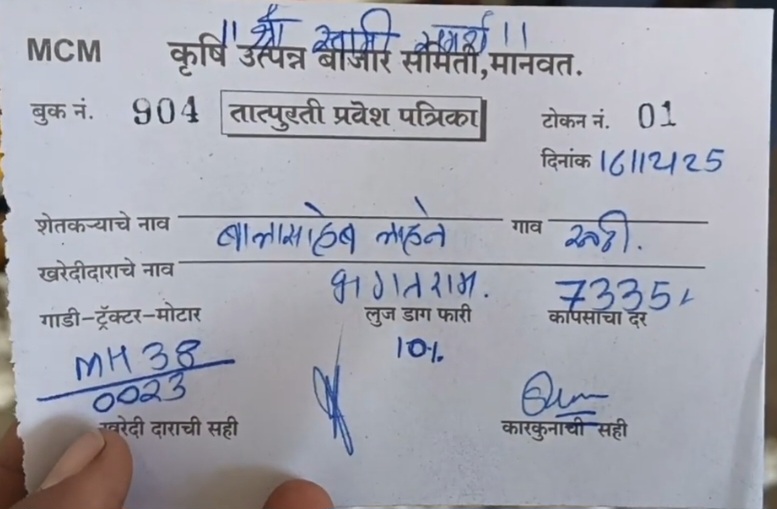 ॥ श्री स्वामी समर्थ ॥
MCM कृषि उत्पन्न बाजार समिती,मानवत.
बुक नं. 904 तात्पुरती प्रवेश पत्रिका टोकन नं. 01
दिनांक 16/12/25
शेतकऱ्याचे नाव बालासाहेब लाहने गाव रूढी.
खरेदीदाराचे नाव भगतराम. 7335/-
गाडी-ट्रॅक्टर-मोटार लुज डाग फारी कापसाचा दर
MH 38 10%
0023
खरेदी दाराची सही कारकुनाची सही